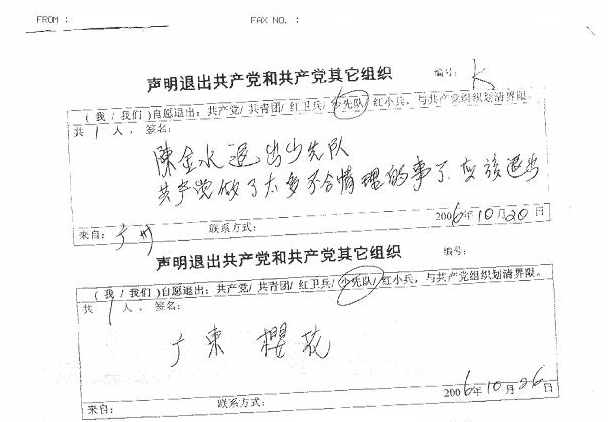 FROM :
FAX NO. :
声明退出共产党和共产党其它组织 编号: K
( 我 / 我们 ) 自愿退出: 共产党/ 共青团/ 红卫兵/ 少先队/ 红小兵, 与共产党组织划清界限。
共 1 人, 签名:
陳金水退出少先队
共产党做了太多不合情理的事了, 应该退出
来自: 广州 联系方式: 2006年10月20日
声明退出共产党和共产党其它组织 编号:
( 我 / 我们 ) 自愿退出: 共产党/ 共青团/ 红卫兵/ 少先队/ 红小兵, 与共产党组织划清界限。
共 1 人, 签名:
广東 櫻花
来自: 联系方式: 2006年10月26日